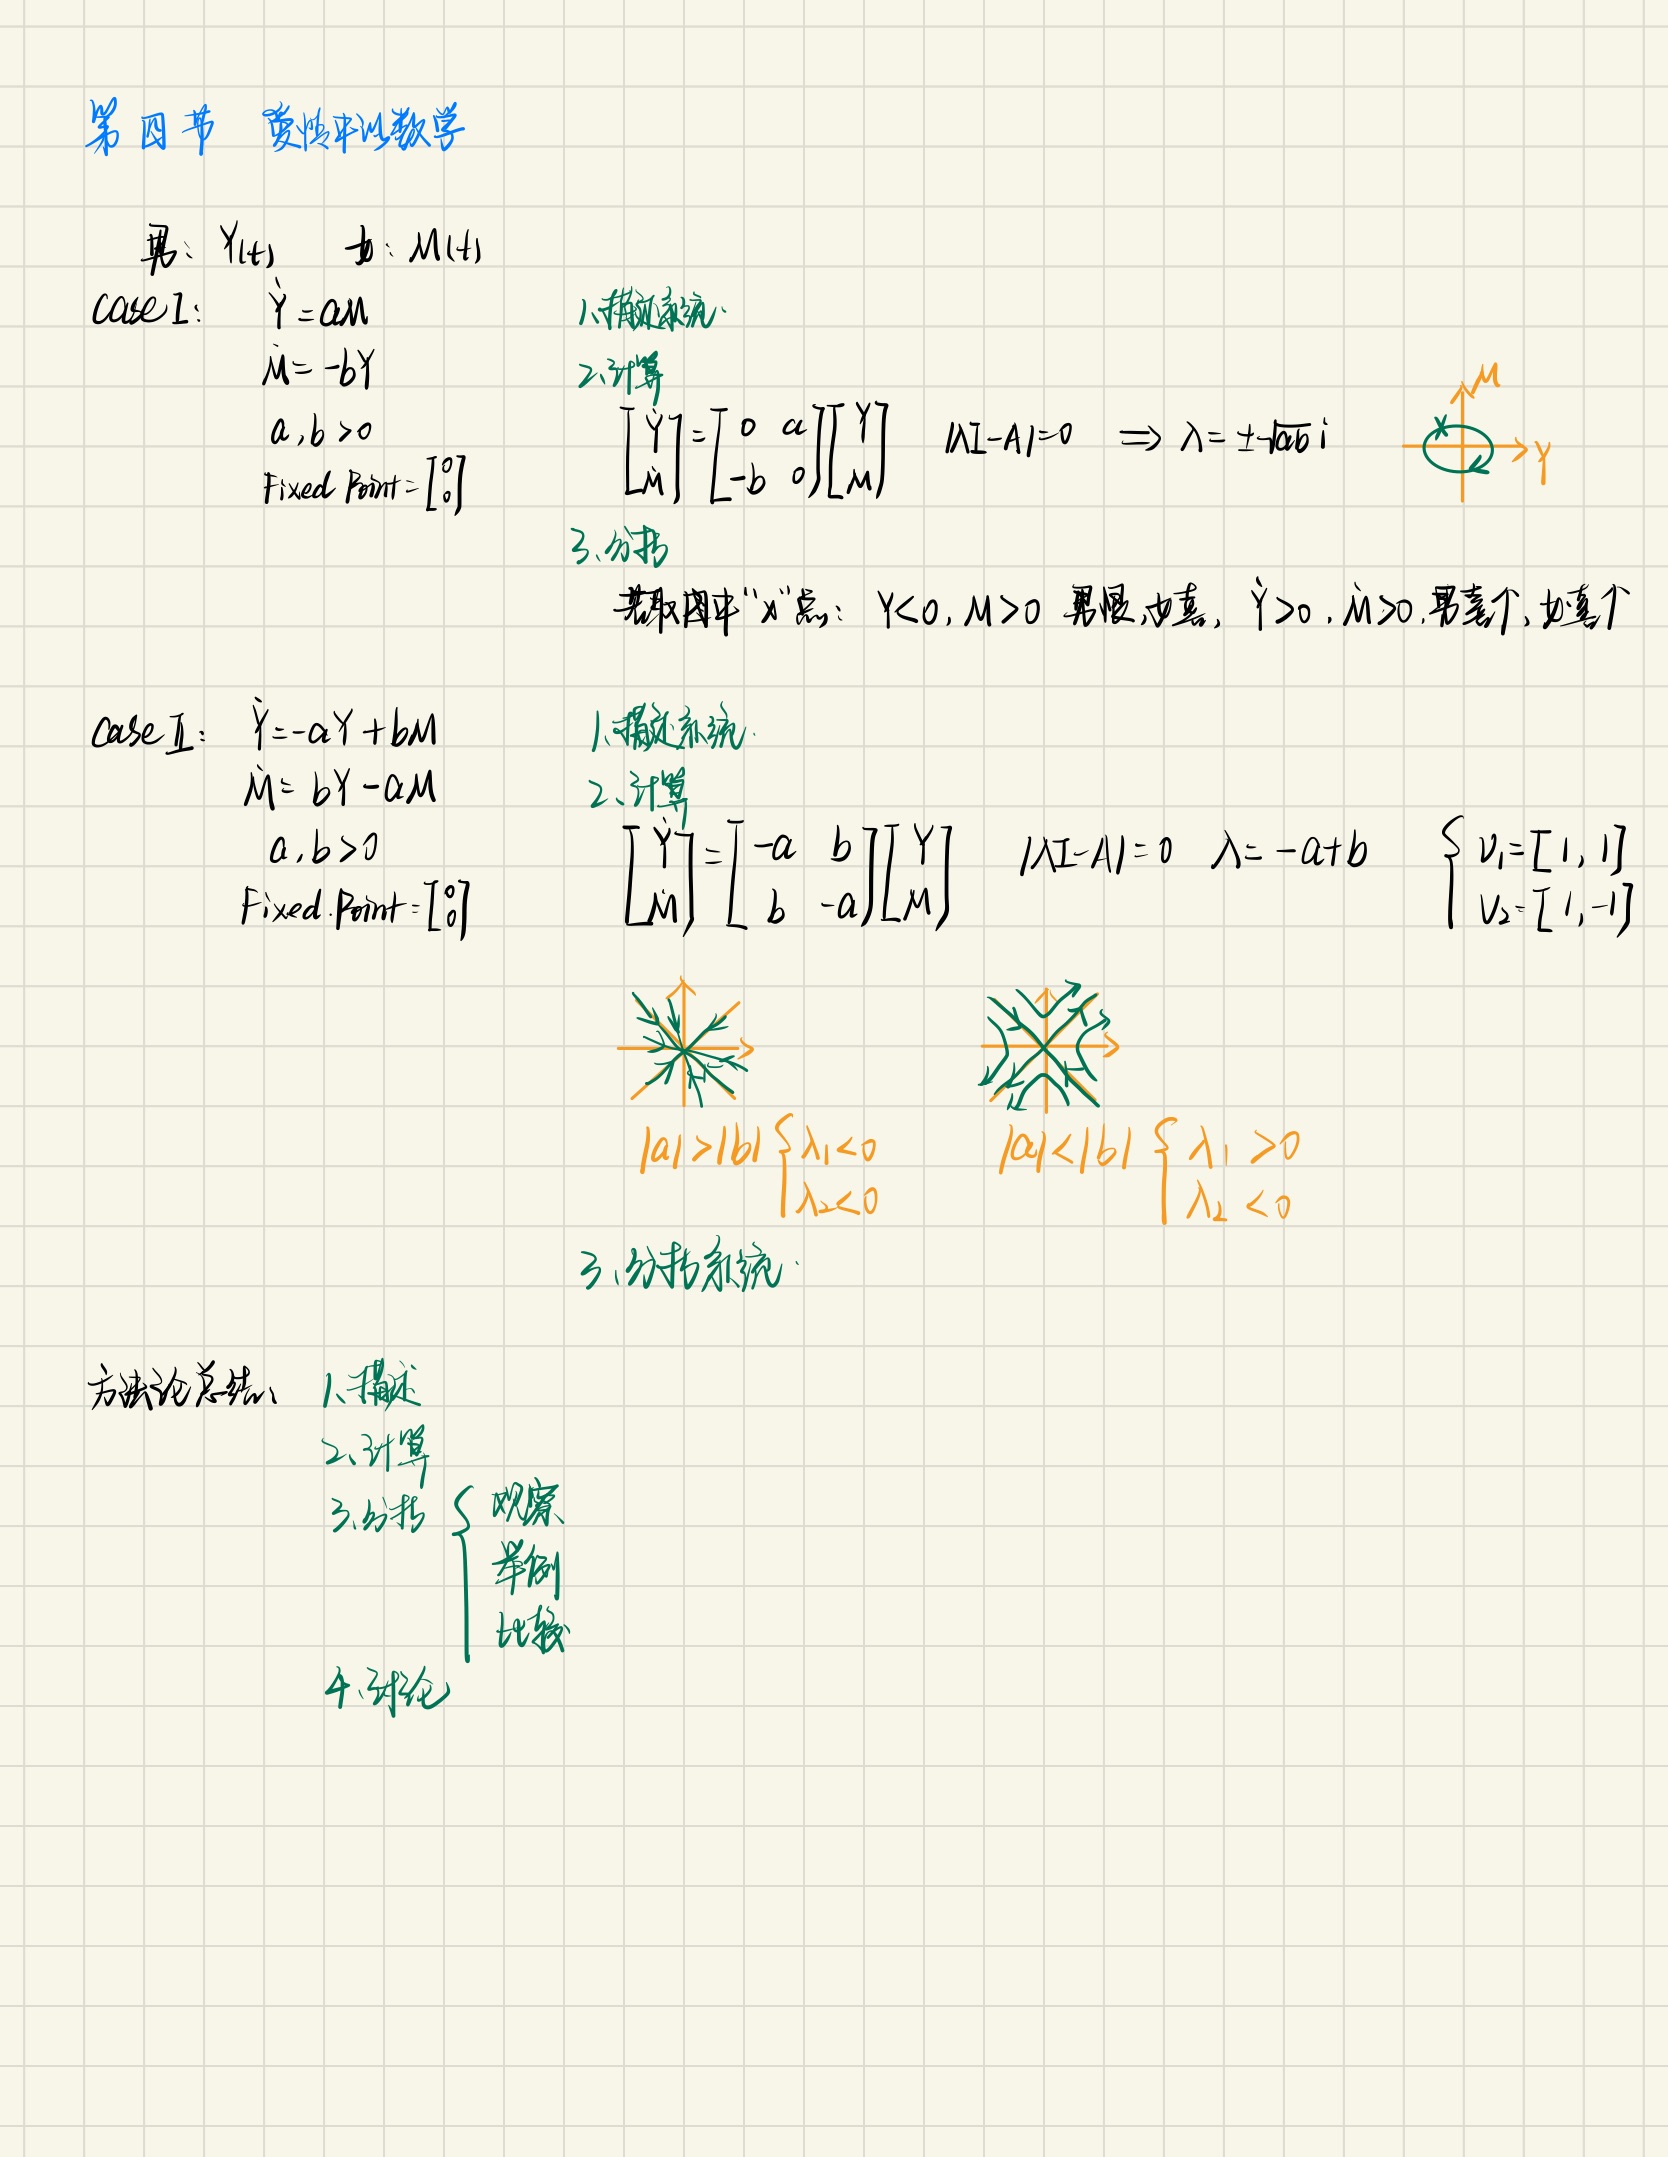 第四节 爱情中的数学
男: Y(t) 女: M(t)
case I: Ẏ = aM
Ṁ = -bY
a, b > 0
Fixed Point = [0 0]
1、描述系统.
2、计算
[Ẏ Ṁ] = [0 a -b 0] [Y M] |λI-A|=0 ⟹ λ = ±√ab i
M
Y
3、分析
若取图中“x”点: Y<0, M>0 男恨,女喜, Ẏ>0, Ṁ>0, 男喜↑, 女喜↑
case II: Ẏ = -aY + bM
Ṁ = bY - aM
a, b > 0
Fixed Point = [0 0]
1、描述系统.
2、计算
[Ẏ Ṁ] = [-a b b -a] [Y M] |λI-A|=0 λ = -a+b { V₁=[1, 1] V₂=[1, -1]
|a|>|b| { λ₁<0 λ₂<0
|a|<|b| { λ₁>0 λ₂<0
3、分析系统.
方法论总结、 1、描述
2、计算
3、分析 { 观察
举例
比较
4、讨论